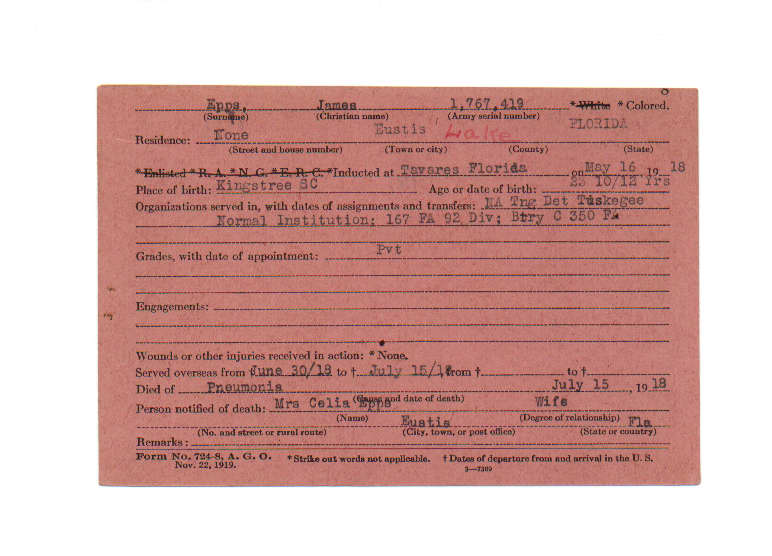 Epps, James 1,767,419 *White *Colored.
(Surname) (Christian name) (Army serial number)
Residence: None Eustis " Lake FLORIDA
(Street and house number) (Town or city) (County) (State)
*Enlisted *R. A. *N. G. *E. R. C. *Inducted at Tavares Florida on May 16 19 18
Place of birth: Kingstree SC Age or date of birth: 23 10/12 Yrs
Organizations served in, with dates of assignments and transfers: MA Tng Det Tuskegee
Normal Institution; 167 FA 92 Div; Btry C 350 FA
Grades, with date of appointment: Pvt
Engagements:
Wounds or other injuries received in action: * None.
Served overseas from † June 30/18 to † July 15/18, from † to †
Died of Pneumonia July 15, 19 18
(Cause and date of death)
Person notified of death: Mrs Celia Epps Wife
(Name) (Degree of relationship)
Eustis Fla
(No. and street or rural route) (City, town, or post office) (State or country)
Remarks:
Form No. 724-8, A. G. O. *Strike out words not applicable. † Dates of departure from and arrival in the U. S.
Nov. 22, 1919. 3—7389